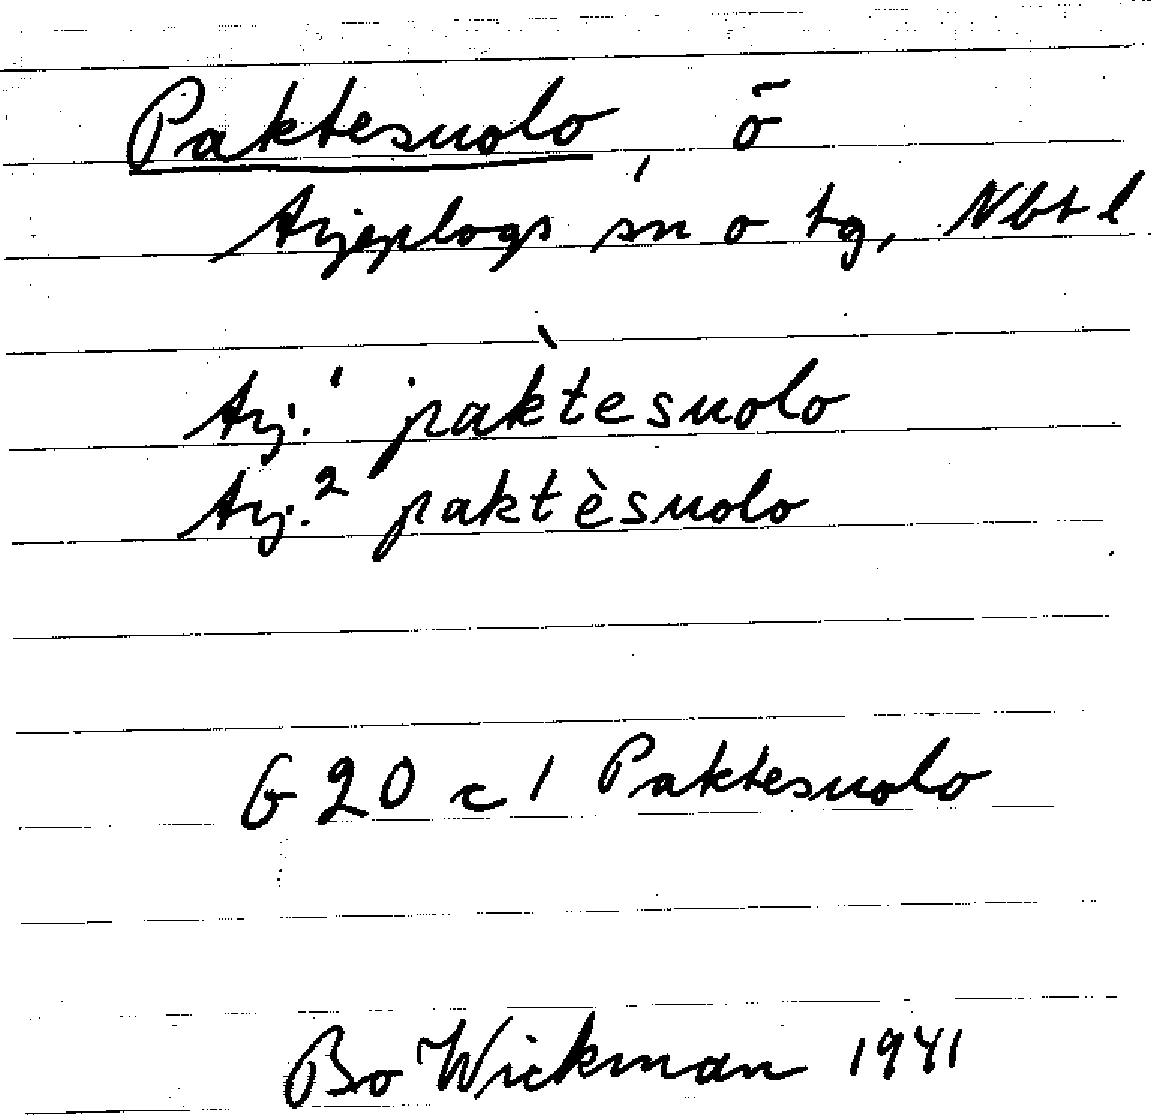 Paktesuolo, ö
Arjeplogs sn o tg, Nbt l
Arj.¹ pak̀tesuolo
Arj.² paktèsuolo
G 20 c 1 Paktesuolo
Bo Wickman 1941